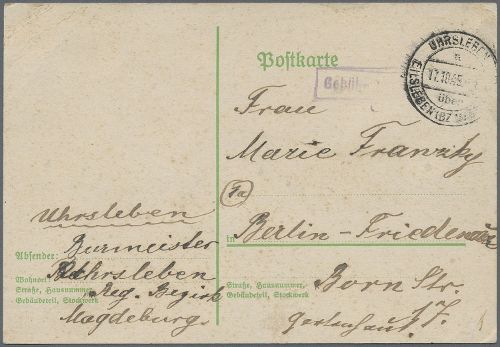 Postkarte
UHRSLEBEN
a
17.10.45
über
EILSLEBEN (BZ
Gebühr
Frau
Marie Franzky
in Berlin-Friedenau
Born Str.
17.
Gartenhaus
Straße, Hausnummer,
Gebäudeteil, Stockwerk
Uhrsleben
Absender: Burmeister
Wohnort Uhrsleben
Straße, Hausnummer,
Reg. Bezirk
Gebäudeteil, Stockwerk
Magdeburg